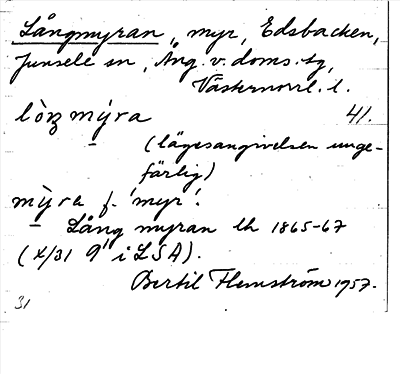 Långmyran, myr, Edsbacken,
Junsele sn, Ång. v. doms.sg,
Västernorrl. l.
lòŋmýra 41.
(lägesangivelsen unge-
färlig)
mỳra f. 'myr'.
– Lång myran lk 1865-67
(X/31 9' i LSA).
Bertil Flemström 1957.
31